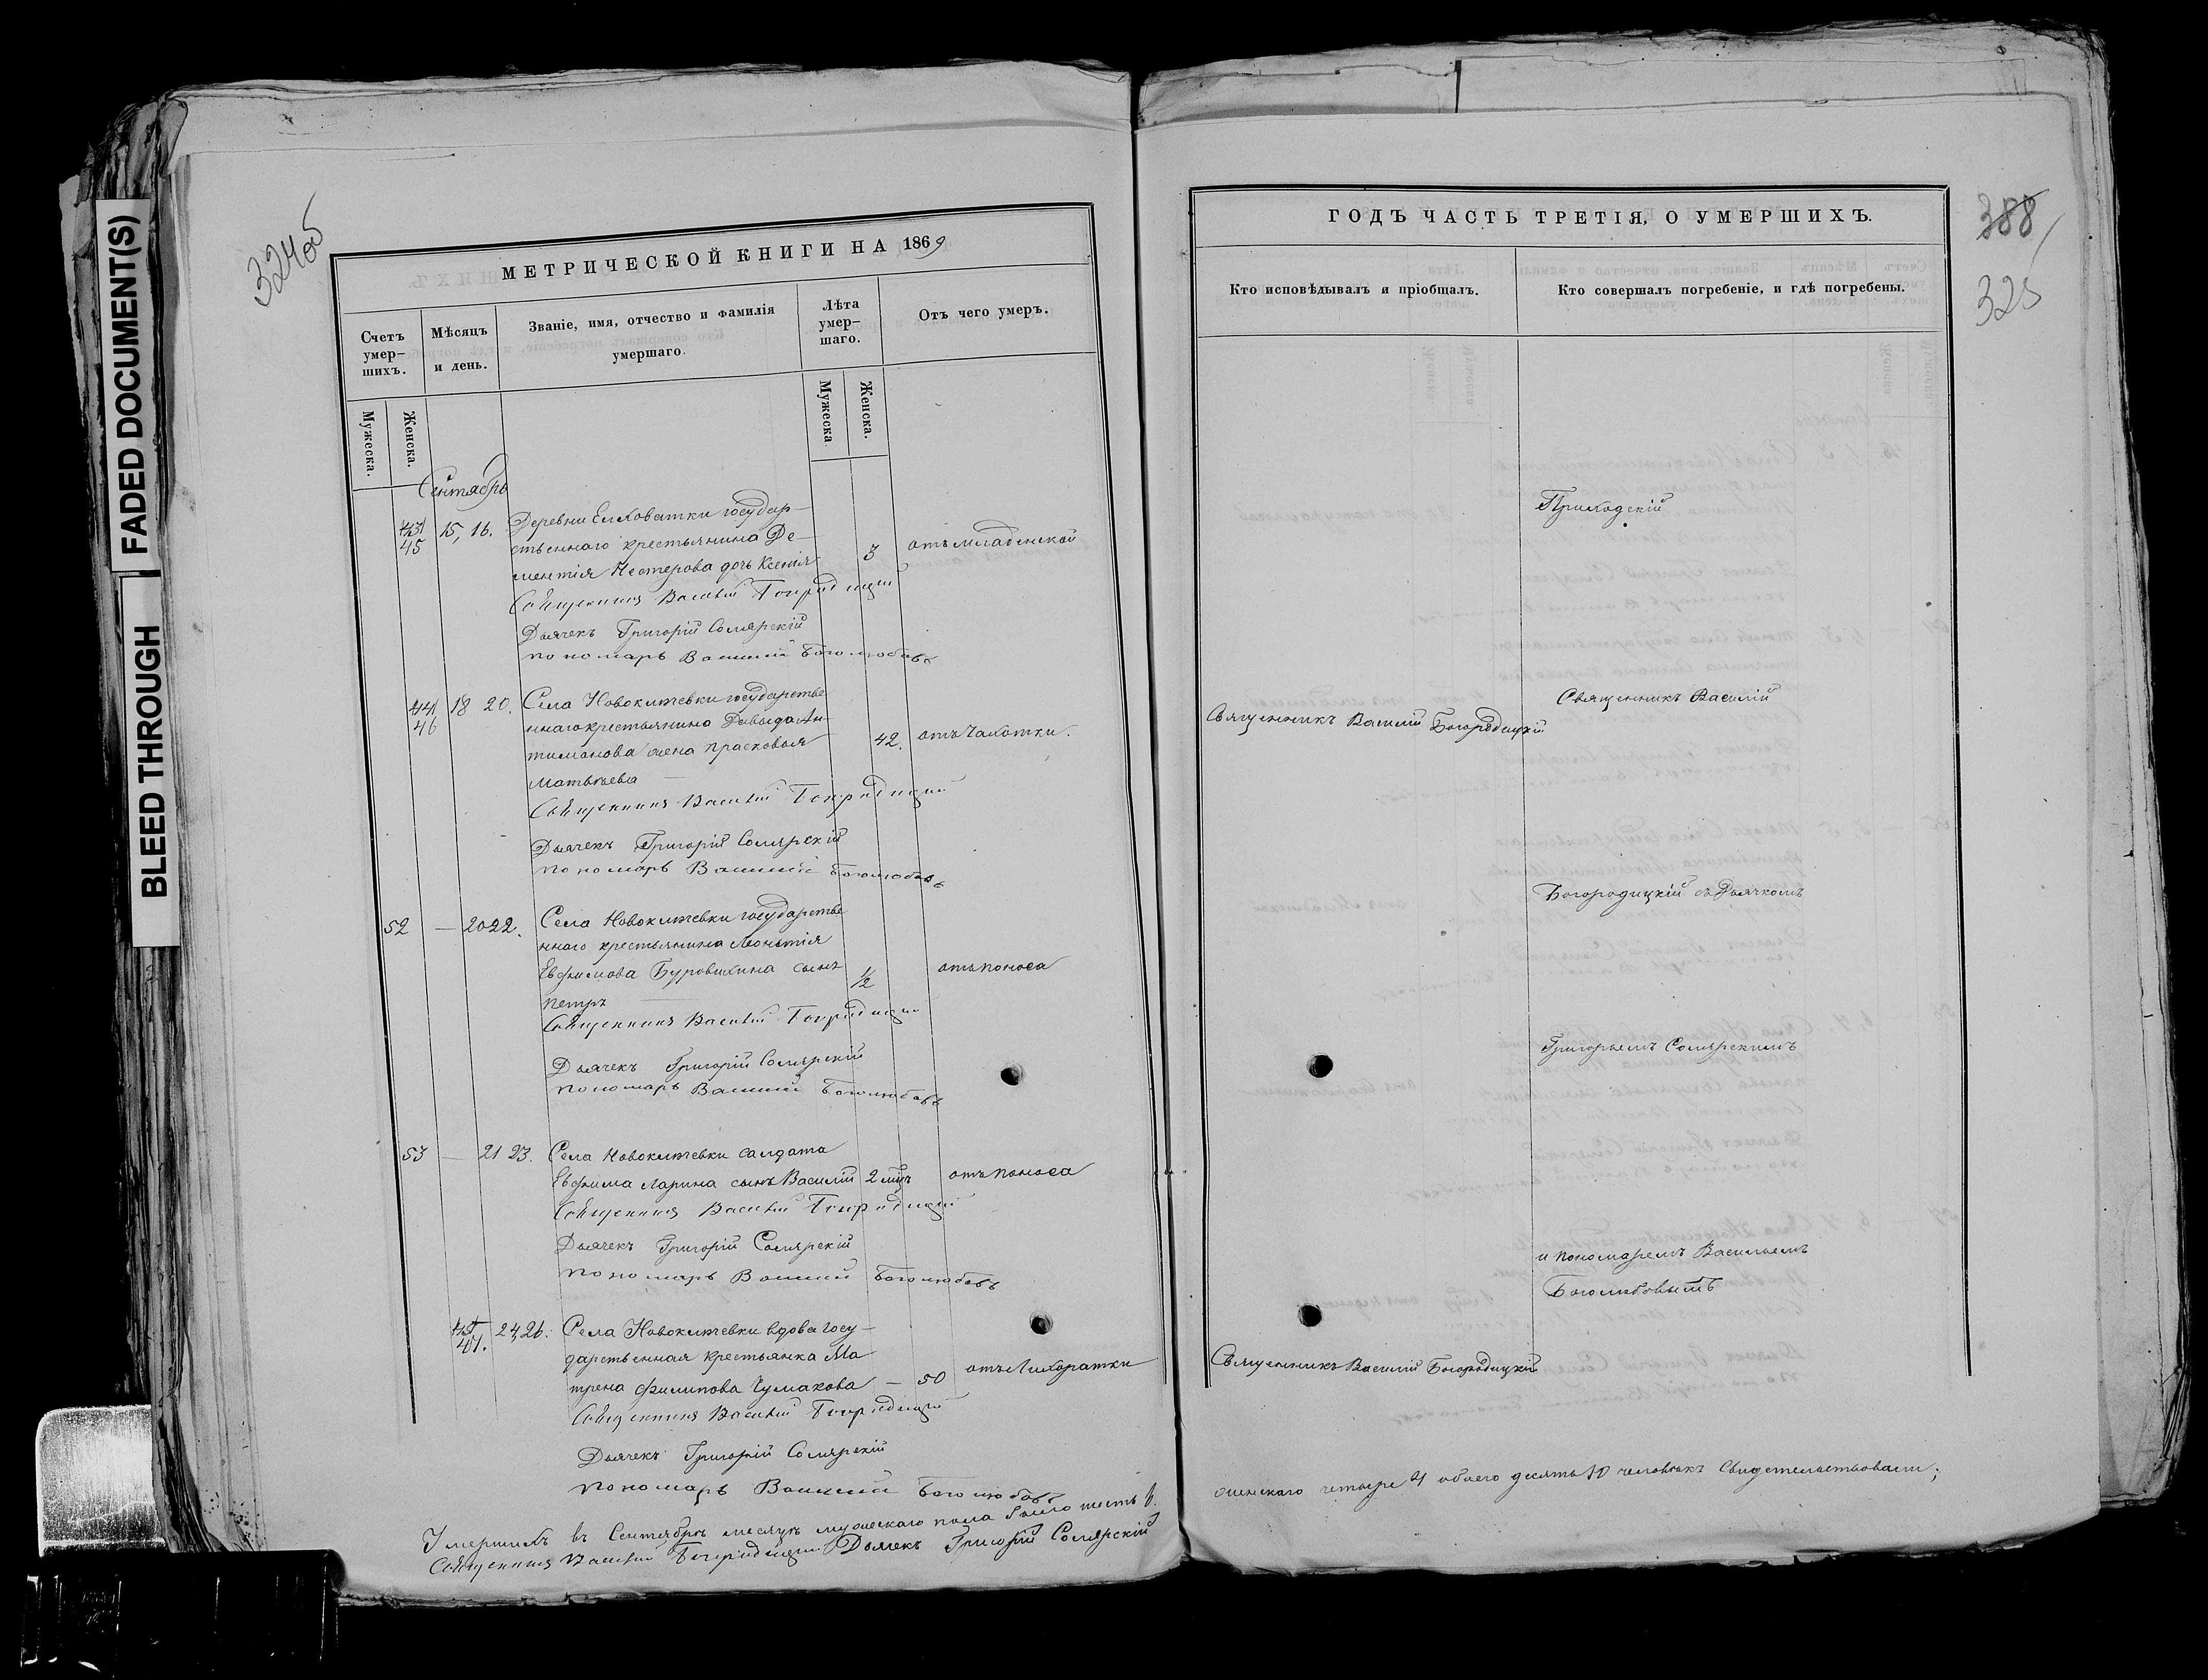 FADED DOCUMENT(S)
BLEED THROUGH
324об
МЕТРИЧЕСКОЙ КНИГИ НА 1869
Счетъ умер-шихъ.
Мѣсяцъ и день.
Званіе, имя, отчество и фамилія умершаго.
Лѣта умер-шаго.
Отъ чего умеръ.
Мужеска.
Женска.
Мужеска
Женска.
Сентябрь
43
45
15, 16.
Деревни Елховатки государ-
ственнаго крестьянина Де-
ментія Нестерова дочь Ксенія
3
отъ младенской
Священникъ Василій Богородицкій
Дьячекъ Григорій Солярскій
пономарь Василій Боголюбовъ
44
46
18 20.
Села Новокитевки государстве
ннаго крестьянино Давыда Ан-
типанова жена Прасковья
Матвѣева
42.
отъ Чахотки.
Священникъ Василій Богородицкій
Дьячекъ Григорій Солярскій
пономарь Василій Боголюбовъ
52 — 20 22.
Села Новокитевки государстве
ннаго крестьянина Леонтія
Евфимова Буровихина сынъ
Петръ
1/2
отъ поноса
Священникъ Василій Богородицкій
Дьячекъ Григорій Солярскій
пономарь Василій Боголюбовъ
53 — 21 23.
Села Новокитевки салдата
Евфима Ларина сынъ Василій
2 мѣц
отъ поноса
Священникъ Василій Богородицкій
Дьячекъ Григорій Солярскій
пономарь Василій Боголюбовъ
45
47.
24, 26.
Села Новокитевки вдова госу-
дарственная крестьянка Ма
трена Филипова Чумакова — 50
отъ Лихоратки
Священникъ Василій Богородицкій
Дьячекъ Григорій Солярскій
пономарь Василій Боголюбовъ
Умершихъ въ Сентябрѣ месяцѣ мужескаго пола было шесть 6.
Священникъ Василій Богородицкій Дьячекъ Григорій Солярскій
388
325
ГОДЪ ЧАСТЬ ТРЕТІЯ, О УМЕРШИХЪ.
Кто исповѣдывалъ и пріобщалъ.
Кто совершалъ погребеніе, и гдѣ погребены.
Приходскій
Священникъ Василій
Священникъ Василій Богородицкій
Богородицкій съ Дьячкомъ
Григорьемъ Солярскимъ
и пономаремъ Васильемъ
Боголюбовымъ
Священникъ Василій Богородицкій
женскаго четыре 4 обоего десять 10 человѣкъ Свидетельствовали;